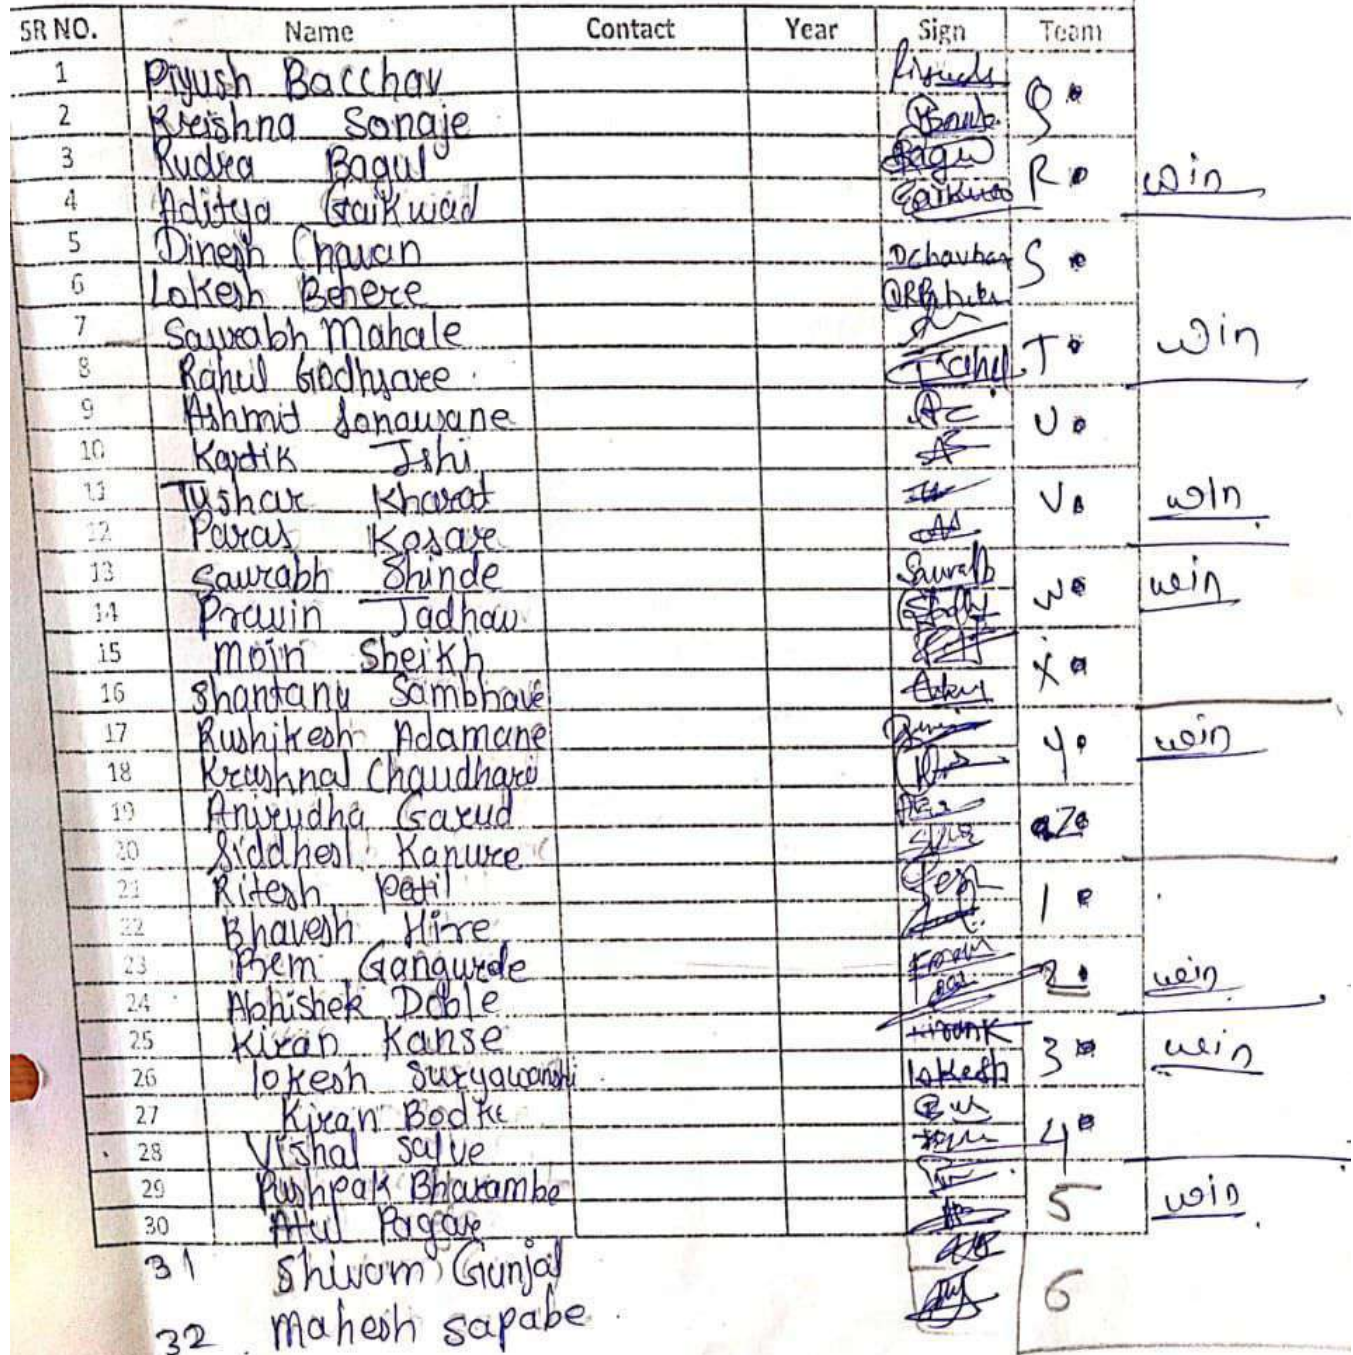 SR NO. Name Contact Year Sign Team
1 Piyush Bacchav
2 Krishna Sonaje
3 Rudra Bagul Bagul R win
4 Aditya Gaikwad Gaikwad
5 Dinesh Chavan Dchavhan S
6 Lokesh Behere
7 Saurabh Mahale T win
8 Rahul Godhsare Rahul
9 Ashmit Sonawane U
10 Kartik Ishi
11 Tushar Kharat V win
12 Paras Kosare
13 Saurabh Shinde Saurabh W win
14 Pravin Jadhav
15 Moin Sheikh X
16 Shantanu Sambhave
17 Rushikesh Adamane Y win
18 Krushnal Chaudhari
19 Anirudha Garud Z
20 Siddhesh Kapure
21 Ritesh Patil 1
22 Bhavesh Hire
23 Prem Gangurde 2 win
24 Abhishek Doble
25 Kiran Kanse KiranK 3 win
26 lokesh Suryawanshi lokesh
27 Kiran Bodke 4
28 Vishal Salve
29 Pushpak Bharambe 5 win
30 Atul Pagare
31 Shivam Gunjal 6
32 Mahesh Sapabe